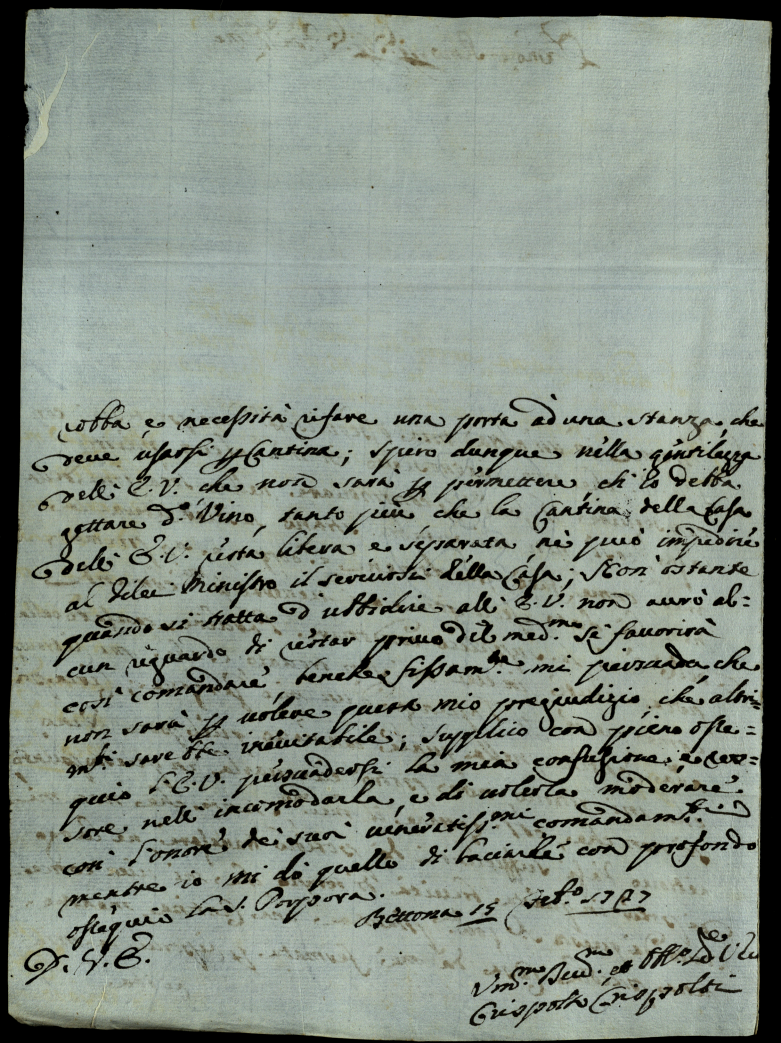 robba è necessità rifare una porta ad una stanza, che
deve usarsi per Cantina; spero dunque nella gentilezza
dell' E. V. che non sarà per permettere ch' io debba
gettare do Vino, tanto più che la Cantina della Casa
dell' E. V. resta libera e separata nè può impedire
al di lei Ministro il servirsi della Casa; Non ostante
quando si tratta d' ubbidire all' E. V. non avrò al=
cun riguardo di restar privo del med.mo se favorirà
così comandare benche fissam.te mi persuada che
non sarà per volere questo mio pregiudizio, che altri=
mti sarebbe inevitabile; supplico con pieno osse=
quio l' E. V. persuadersi la mia confusione, e ros=
sore nell' incomodarla, e di volerla moderare
con l' onore dei suoi veneratiss.mi comandam.ti
mentre io mi do quello di baciarle con profondo
ossequio la S. Porpora.
Bettona 15 Feb.o 1727
D. V. E.
Um.mo Dev.mo et Obb.mo
Crispolto Crispolti